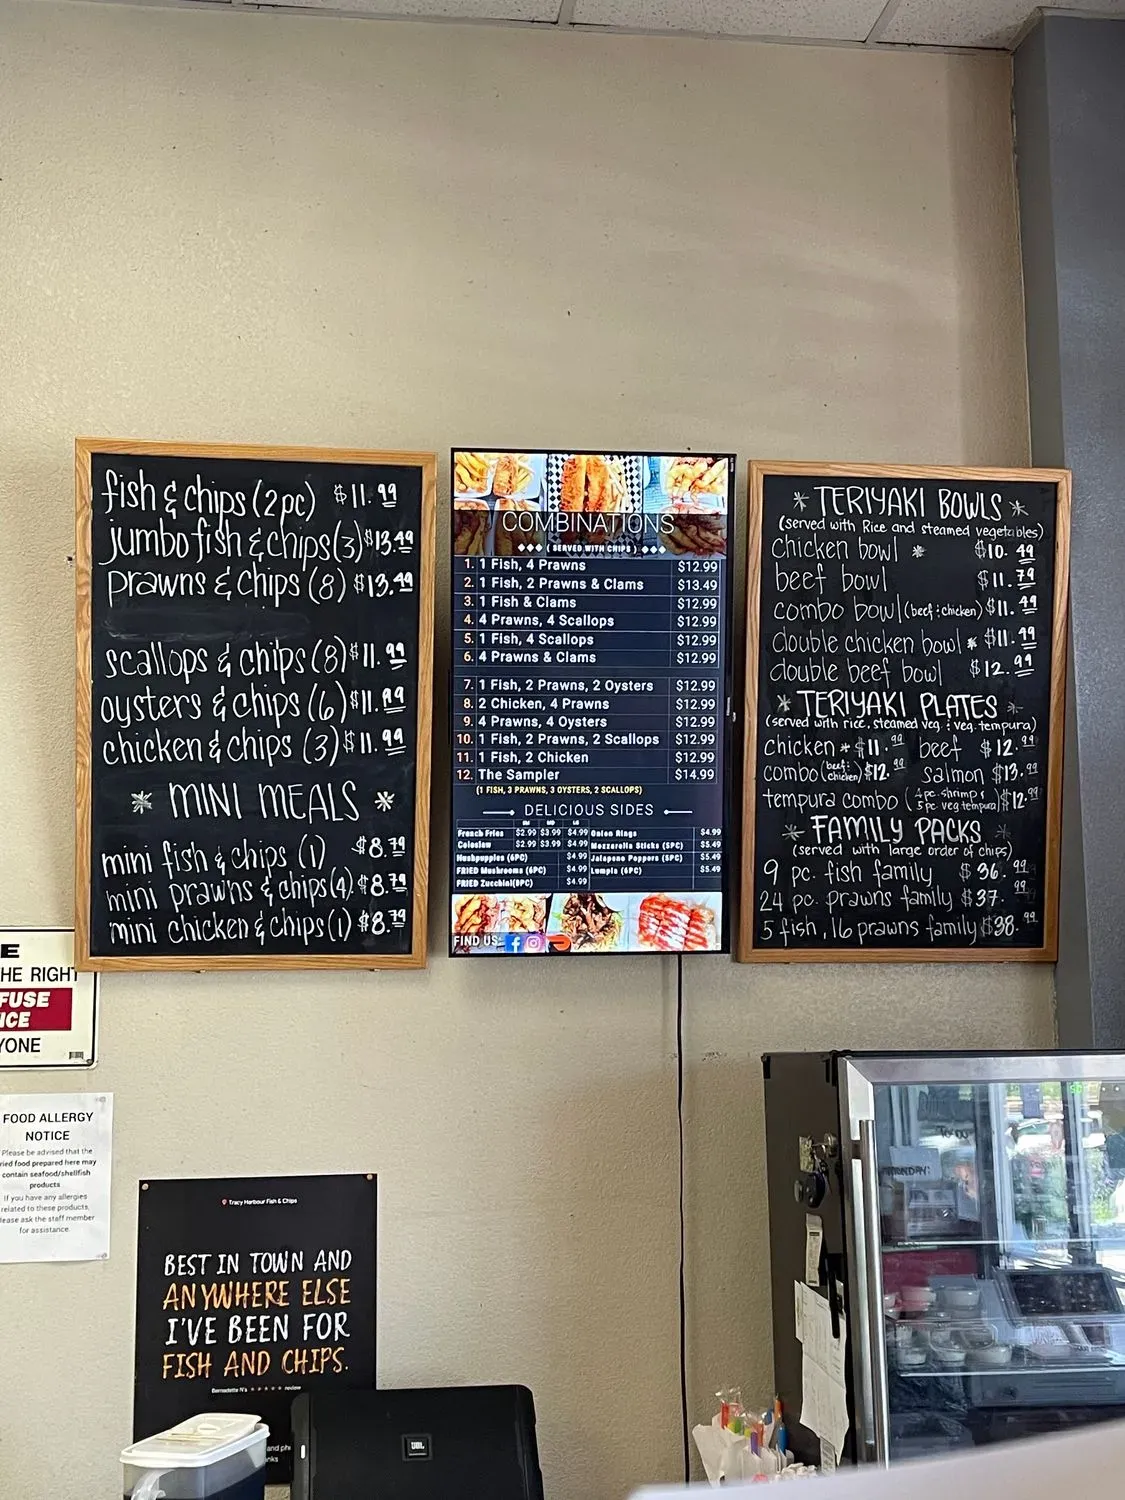 fish & chips (2pc) $11.99
jumbo fish & chips (3) $13.49
prawns & chips (8) $13.49
scallops & chips (8) $11.99
oysters & chips (6) $11.99
chicken & chips (3) $11.99
* MINI MEALS *
mini fish & chips (1) $8.79
mini prawns & chips (4) $8.79
mini chicken & chips (1) $8.79
COMBINATIONS
( SERVED WITH CHIPS )
1. 1 Fish, 4 Prawns $12.99
2. 1 Fish, 2 Prawns & Clams $13.49
3. 1 Fish & Clams $12.99
4. 4 Prawns, 4 Scallops $12.99
5. 1 Fish, 4 Scallops $12.99
6. 4 Prawns & Clams $12.99
7. 1 Fish, 2 Prawns, 2 Oysters $12.99
8. 2 Chicken, 4 Prawns $12.99
9. 4 Prawns, 4 Oysters $12.99
10. 1 Fish, 2 Prawns, 2 Scallops $12.99
11. 1 Fish, 2 Chicken $12.99
12. The Sampler $14.99
(1 FISH, 3 PRAWNS, 3 OYSTERS, 2 SCALLOPS)
DELICIOUS SIDES
SM MD LG
French Fries $2.99 $3.99 $4.99 Onion Rings $4.99
Coleslaw $2.99 $3.99 $4.99 Mozzerella Sticks (5PC) $5.49
Hushpuppies (6PC) $4.99 Jalapeno Poppers (5PC) $5.49
FRIED Mushrooms (6PC) $4.99 Lumpia (6PC) $5.49
FRIED Zucchini(8PC) $4.99
FIND US:
* TERIYAKI BOWLS *
(served with Rice and steamed vegetables)
chicken bowl * $10.49
beef bowl $11.79
combo bowl (beef & chicken) $11.49
double chicken bowl * $11.99
double beef bowl $12.99
* TERIYAKI PLATES *
(served with rice, steamed veg. & veg. tempura)
chicken * $11.99 beef $12.99
combo (beef & chicken) $12.99 salmon $13.99
tempura combo (4pc. shrimp & 5pc veg tempura) $12.99
* FAMILY PACKS *
(served with large order of chips)
9 pc. fish family $36.99
24 pc. prawns family $37.99
5 fish, 16 prawns family $38.99
E
HE RIGHT
FUSE
ICE
YONE
FOOD ALLERGY
NOTICE
Please be advised that the
ried food prepared here may
contain seafood/shellfish
products
If you have any allergies
related to these products,
lease ask the staff member
for assistance.
Tracy Harbour Fish & Chips
BEST IN TOWN AND
ANYWHERE ELSE
I'VE BEEN FOR
FISH AND CHIPS.
Bernadette N's ★★★★★ review
JBL